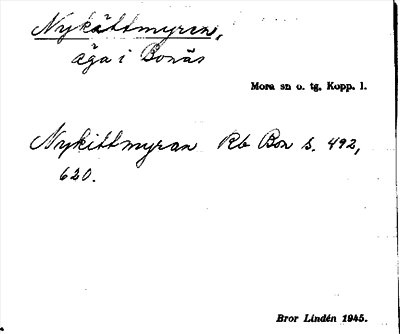 Nykättmyren,
äga i Bonäs
Mora sn o. tg. Kopp. l.
Nykittmyran Rb Bon s. 492,
620.
Bror Lindén 1945.